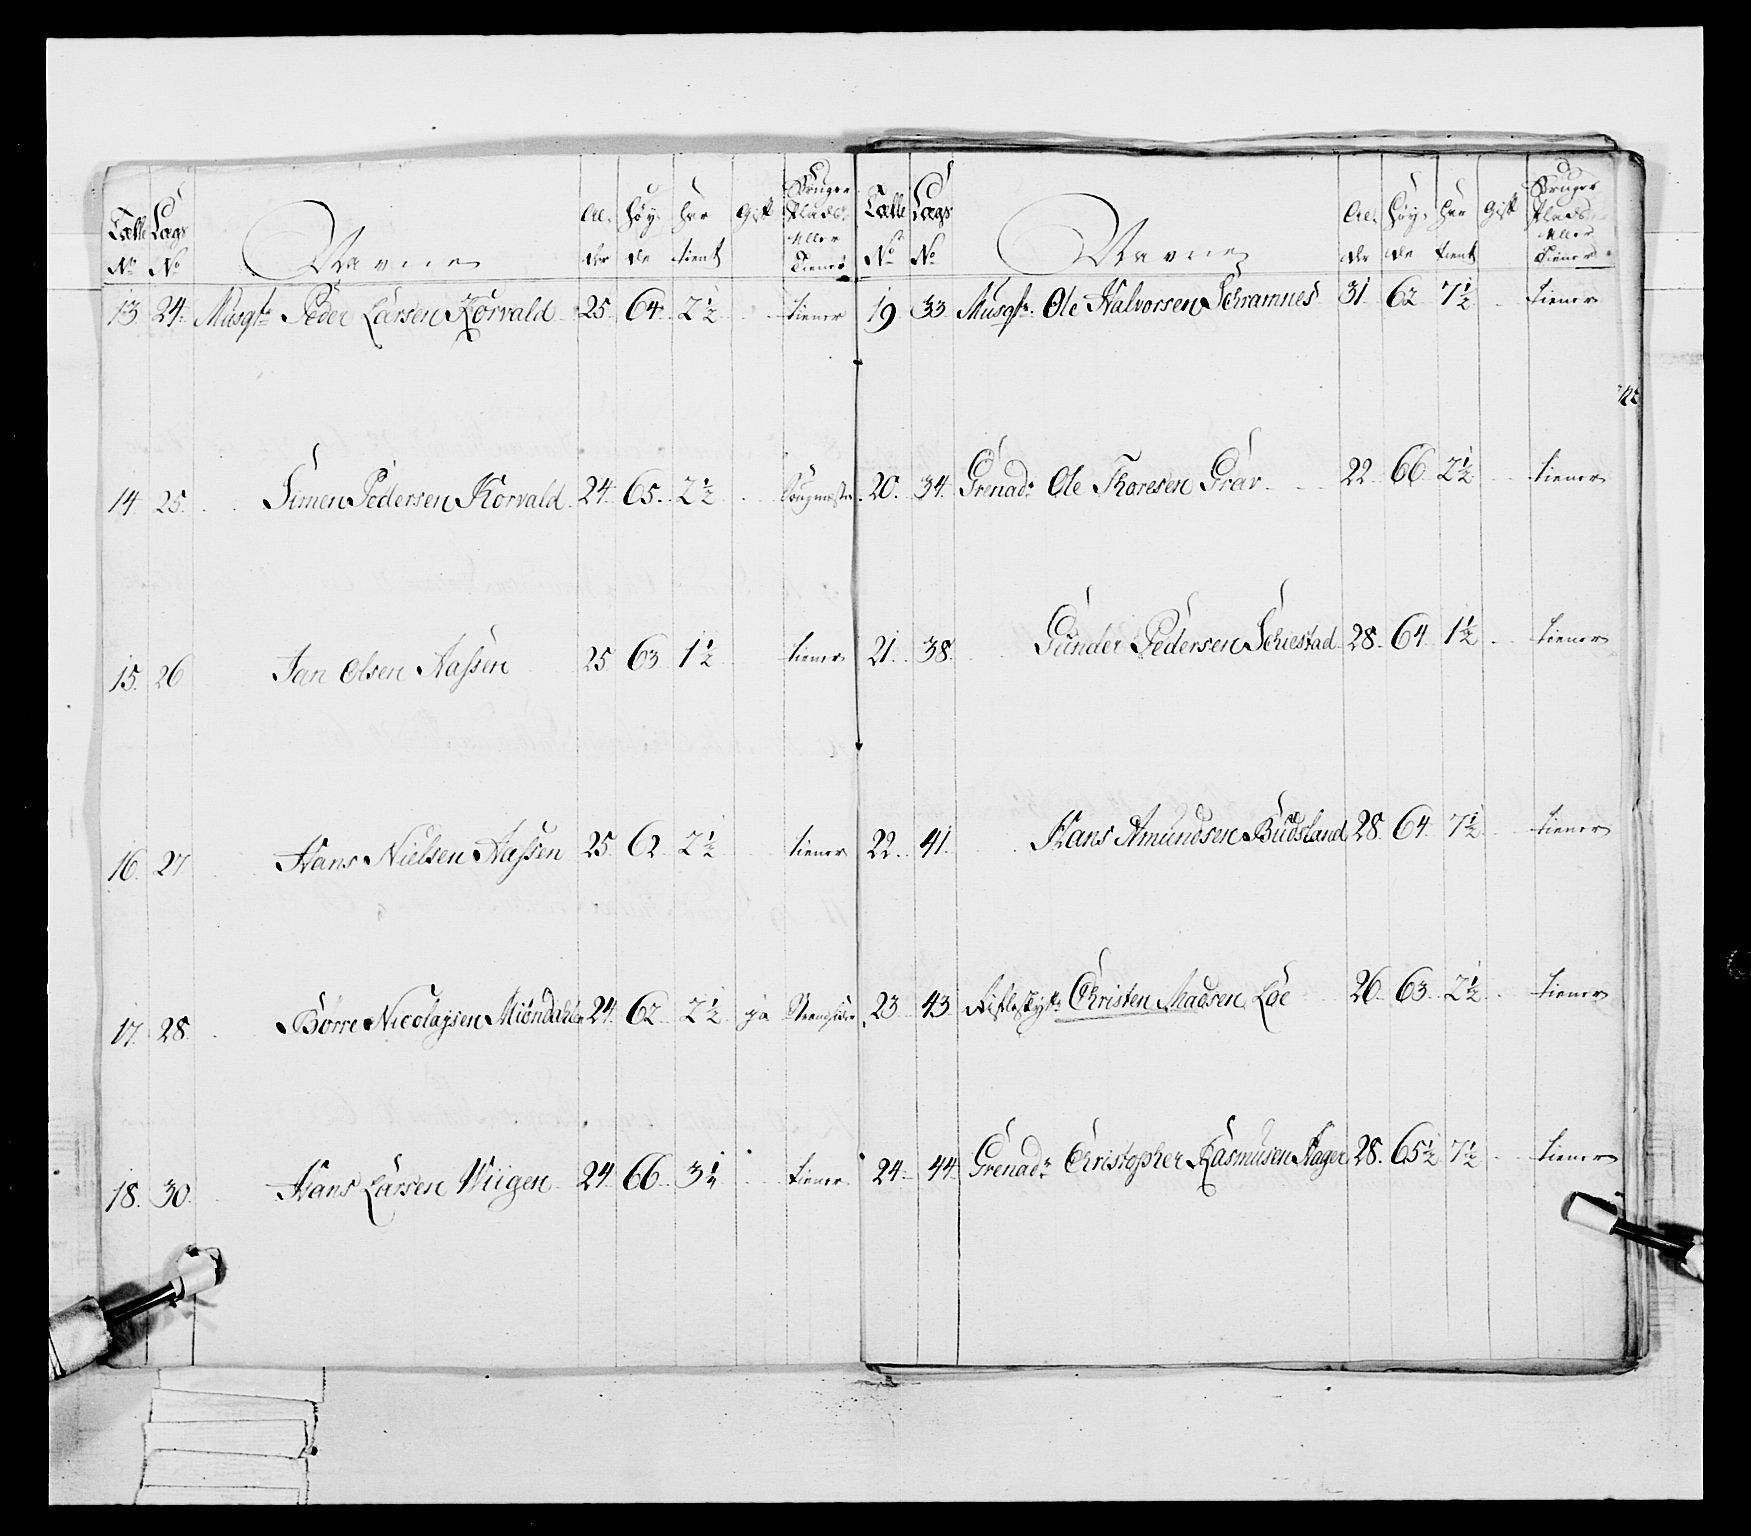 Tælle No Lægs No Navne Alder Høyde har tient Gift Bruger Plads eller Tiener
13. 24. Musqt. Peder Larsen Korvald 25. 64. 2½ tiener
14 25. Simen Pedersen Korvald 24. 65. 2½
15. 26 Jan Olsen Aassen 25 63 1½ tiener
16. 27 Hans Nielsen Aassen 25. 62 2½ tiener
17. 28. Börre Nicolaysen 24. 62 2½ ja
18. 30. Hans Larsen Wiigen 24. 66. tiener
Tælle No Lægs No Navne Alder Høyde har tient Gift Bruger Plads eller Tiener
19 33 Musqt. Ole Halvorsen Schramnes 31. 62 7½ tiener
20. 34. Grenadr Ole Thoresen Grav 22. 66 2½ tiener
21. 38. Gunder Pedersen 28. 64 1½ tiener
22. 41. Hans Amundsen Budsland 28. 64. 7½ tiener
23 43. Christen Madsen Löe 26. 63. 2½ tiener
24. 44. Grenadr Christopher Rasmusen Hager 28. 65½ 7½ tiener